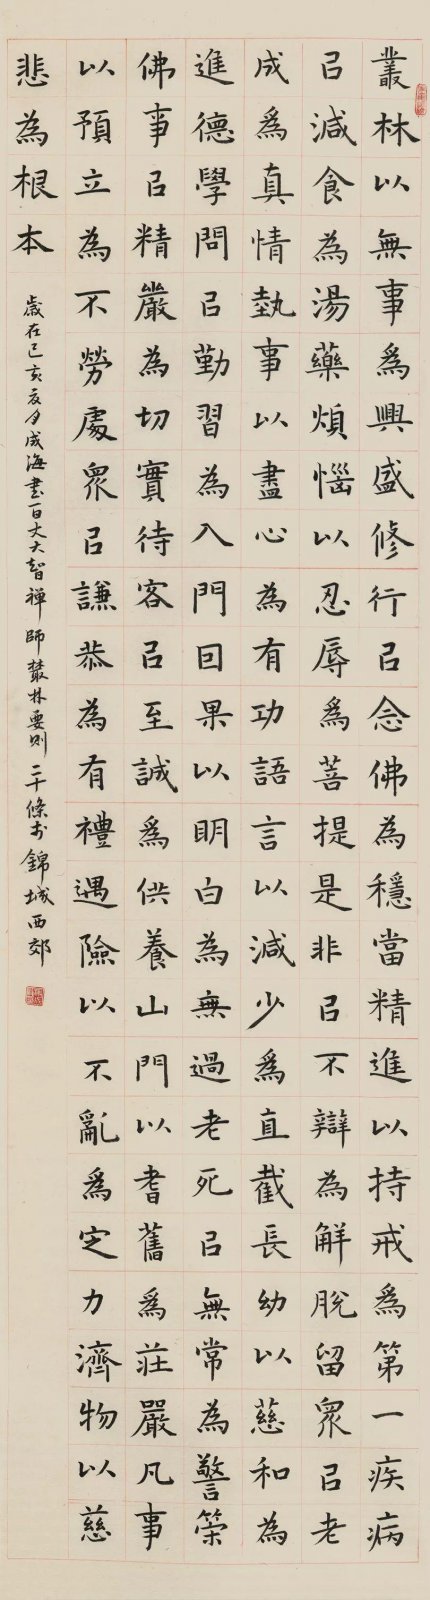 叢林以無事為興盛修行㠯念佛為穩當精進以持戒為第一疾病
㠯減食為湯藥煩惱以忍辱為菩提是非㠯不辯為解脫留眾㠯老
成為真情執事以盡心為有功語言以減少為直截長幼以慈和為
進德學問㠯勤習為入門因果以明白為無過老死㠯無常為警策
佛事㠯精嚴為切實待客㠯至誠為供養山門以耆舊為莊嚴凡事
以預立為不勞處眾㠯謙恭為有禮遇險以不亂為定力濟物以慈
悲為根本
歲在己亥夏月成海書百丈大智禅師叢林要则二十條於錦城西郊